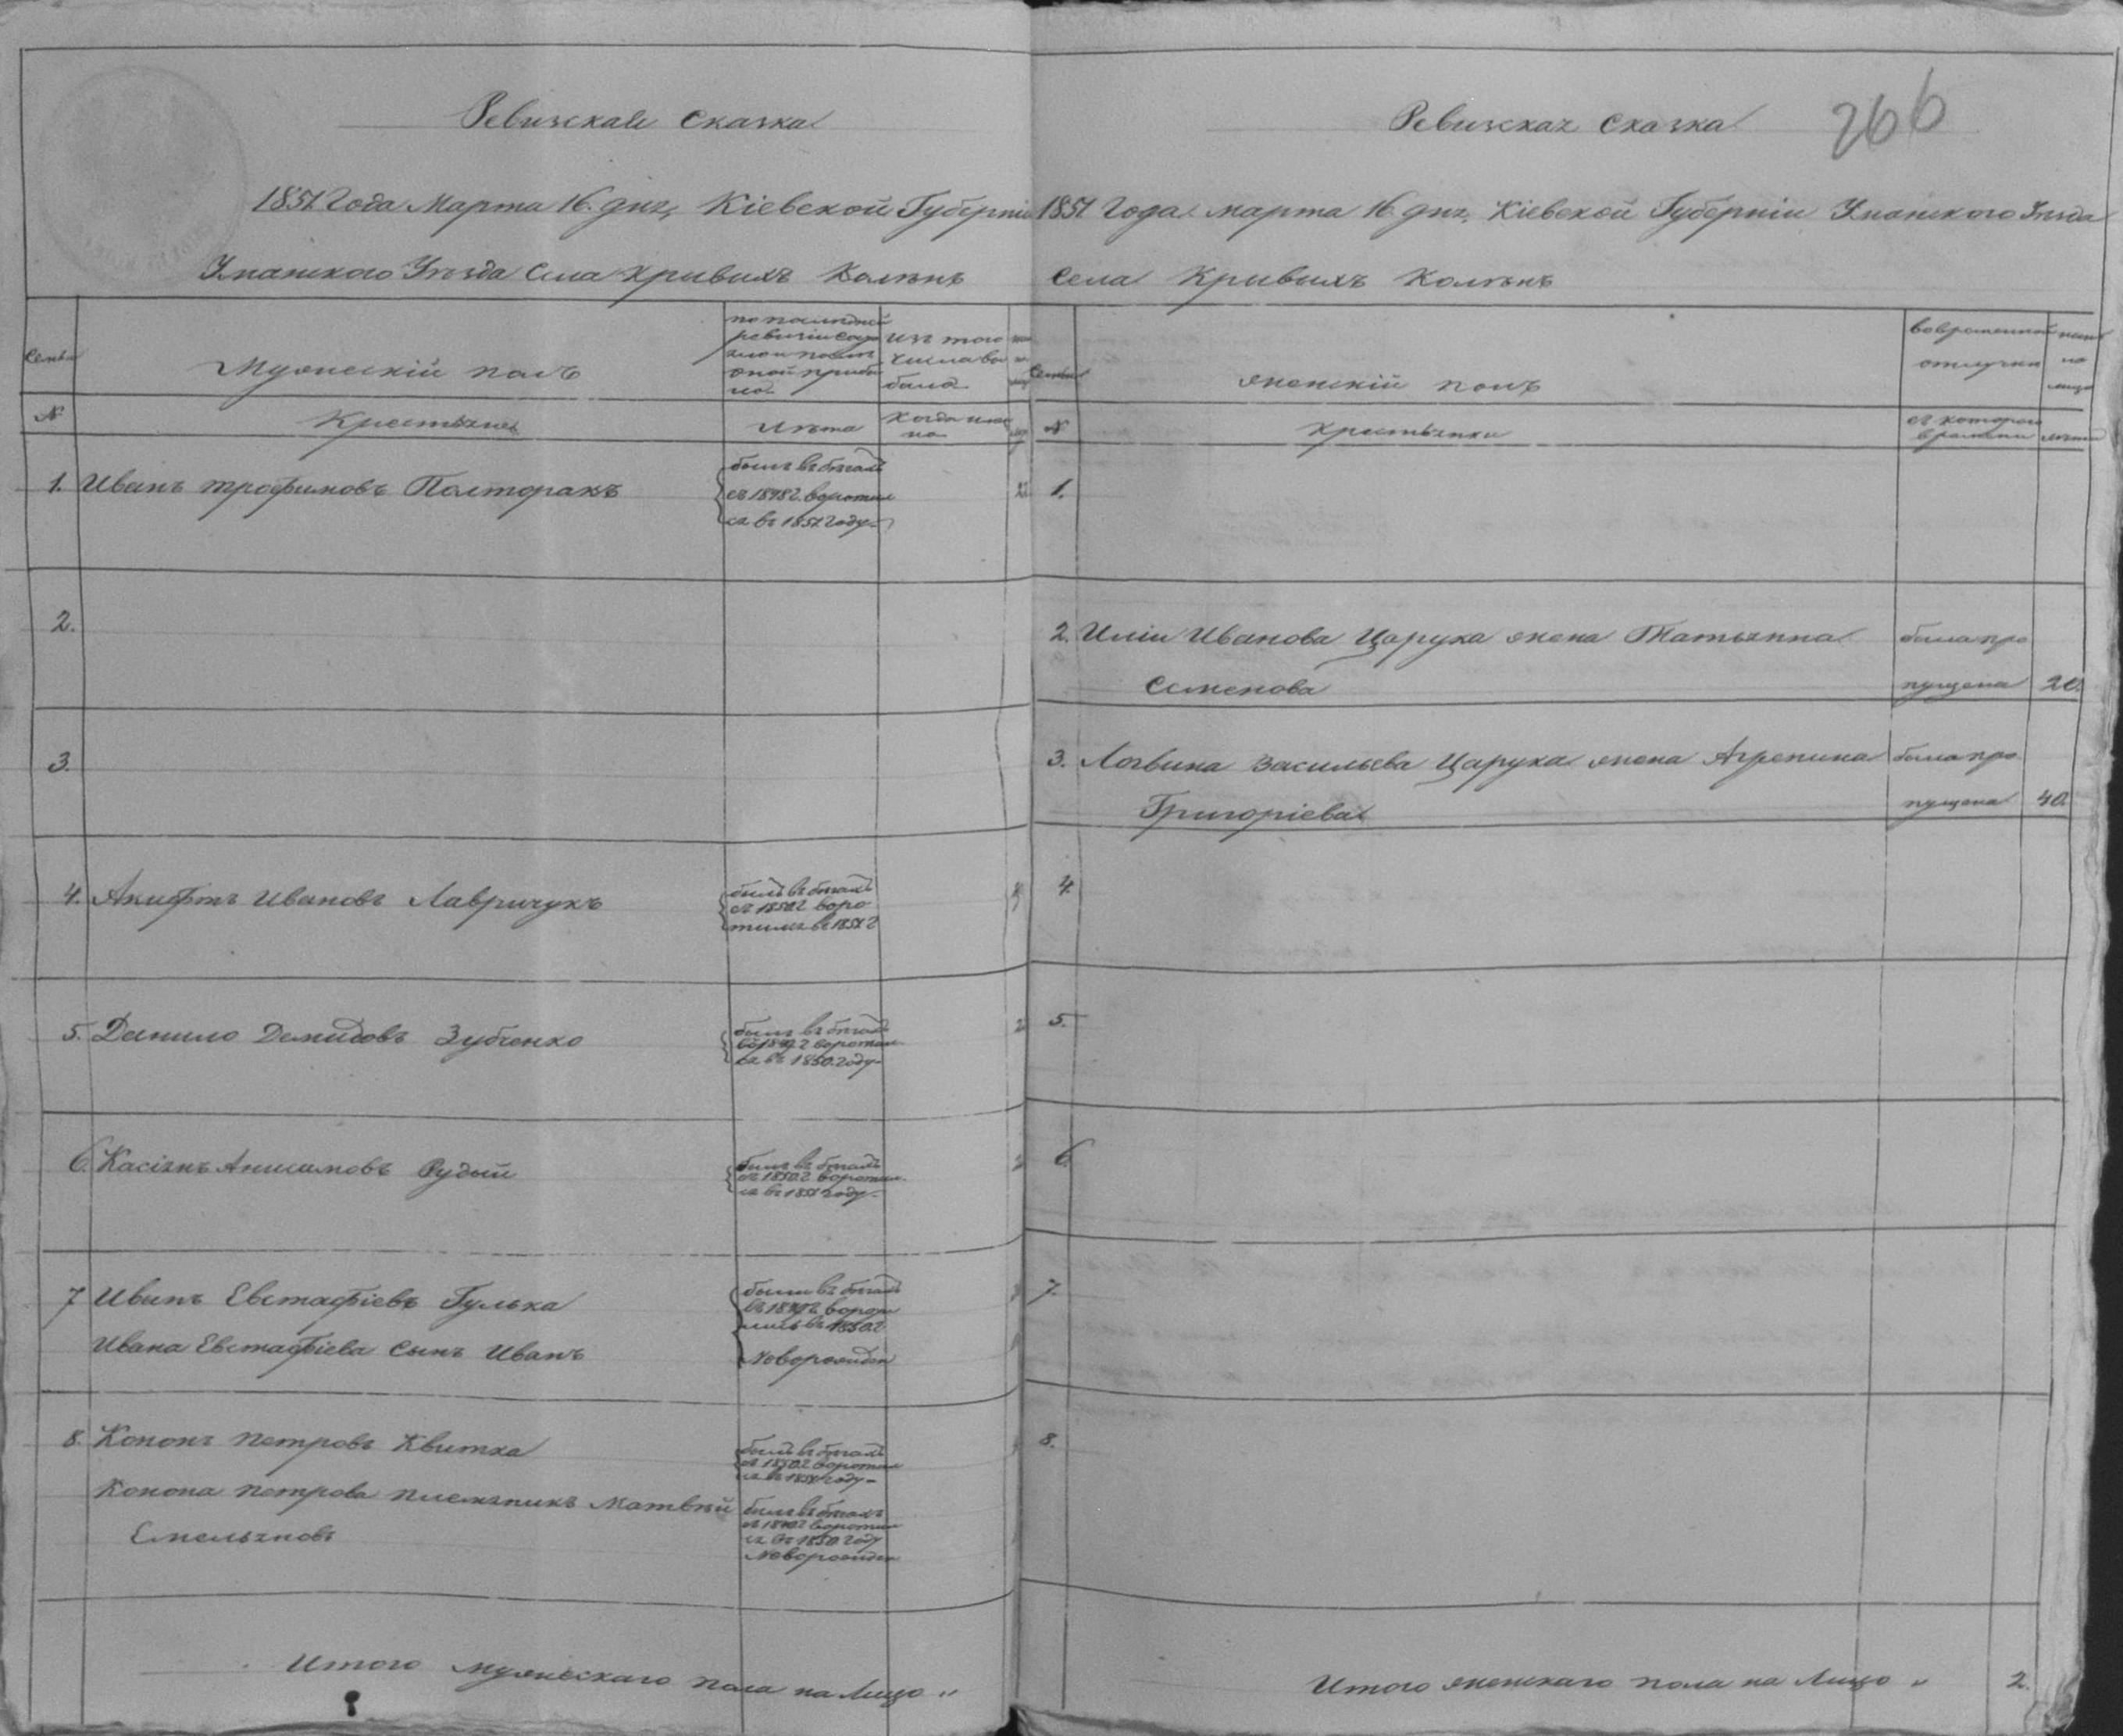 Ревизская сказка
1851 Года Марта 16. дня, Кіевской Губерніи
Уманского Уѣзда Села Кривыхъ Колѣнъ
Семьи
Мужескій полъ
по последней
ревизіи состо
яло и послѣ
оной прибы
ло
изъ того
числа вы
было
№
Крестьяне
Лѣта
Когда имен
но
1. Иванъ Трофимовъ Полторакъ
былъ въ бѣгахъ
съ 1848 г. воротил
ся въ 1851 году
22
2.
3.
4. Акифтъ Ивановъ Лавричукъ
былъ въ бѣгахъ
съ 1850 г воро
тился въ 1851 г
5. Данило Демидовъ Зубченко
былъ въ бѣгахъ
воротил
ся въ 1850. году
6. Касіянъ Анисимовъ Рудый
былъ въ бѣгахъ
съ 1850 г воротил
ся въ 1851 году
7 Иванъ Евстафіевъ Гулька
былъ въ бѣгахъ
ворот
ился въ 1850 г
Ивана Евстафіева сынъ Иванъ
Новорожден
8. Кононъ Петровъ Квитка
былъ въ бѣгахъ
съ 1850 г воротил
ся въ 1851 году
Конона Петрова племяникъ Матвѣй
Емельяновъ
былъ въ бѣгахъ
воротил
ся въ 1850 году
Новорожден
Итого мужескаго пола на Лицо "
Ревизская сказка
266
1851 Года марта 16 дня, Кіевской Губерніи Уманского Уѣзда
Села Кривыхъ Колѣнъ
Семьи
женскій полъ
во временной
отлучки
ны
на
лицо
№
Крестьянки
съ котораго
времени
лѣта
1.
2. Иліи Иванова Царука жена Татьянна
Семенова
была про
пущена
20.
3. Логвина Васильева Царука жена Агрепина
Григоріева
была про
пущена
40.
4.
5.
6.
7.
8.
Итого женскаго пола на Лицо "
2.